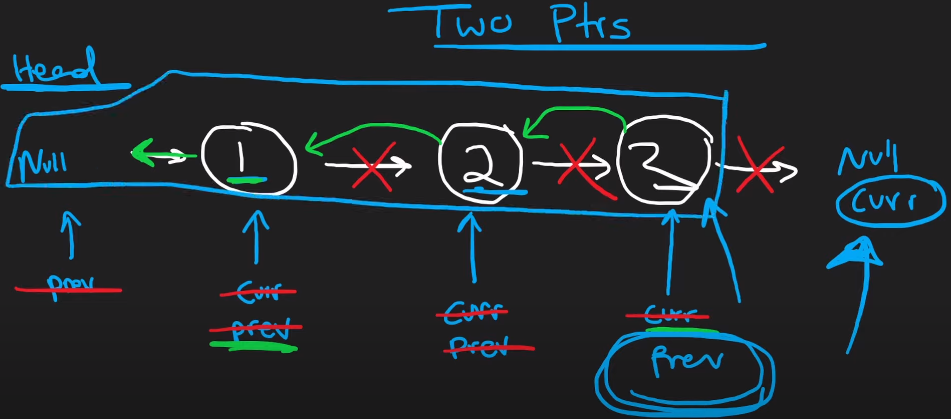 Two Ptrs
Head
Null
1
2
3
Null
Curr
prev
Curr
prev
Curr
Prev
Curr
Prev